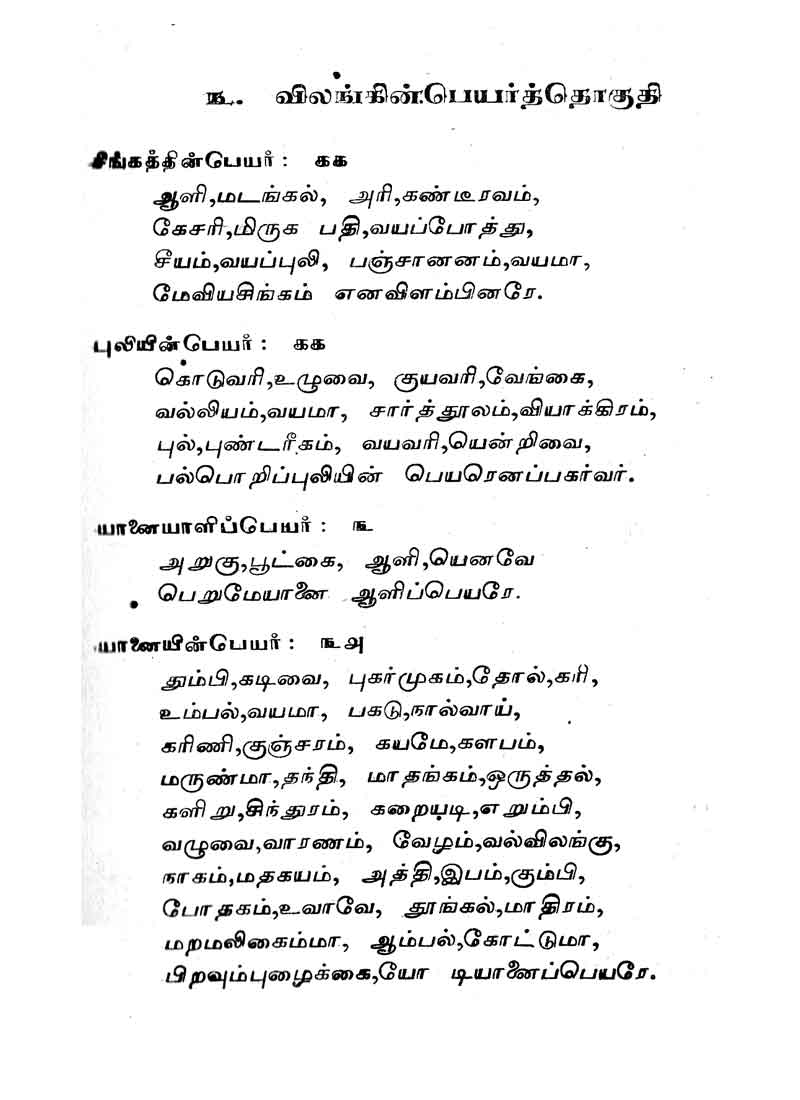 ௩. விலங்கின்பெயர்த்தொகுதி
சிங்கத்தின்பெயர் : ௧௧
ஆளி,மடங்கல், அரி,கண்டீரவம்,
கேசரி,மிருக பதி,வயப்போத்து,
சீயம்,வயப்புலி, பஞ்சானனம்,வயமா,
மேவியசிங்கம் எனவிளம்பினரே.
புலியின்பெயர் : ௧௧
கொடுவரி,உழுவை, குயவரி,வேங்கை,
வல்லியம்,வயமா, சார்த்தூலம்,வியாக்கிரம்,
புல்,புண்டரீகம், வயவரி,யென்றிவை,
பல்பொறிப்புலியின் பெயரெனப்பகர்வர்.
யானையாளிப்பெயர் : ௩
அறுகு,பூட்கை, ஆளி,யெனவே
பெறுமேயானை ஆளிப்பெயரே.
யானையின்பெயர் : ௩அ
தும்பி,கடிவை, புகர்முகம்,தோல்,கரி,
உம்பல்,வயமா, பகடு,நால்வாய்,
கரிணி,குஞ்சரம், கயமே,களபம்,
மருண்மா,தந்தி, மாதங்கம்,ஒருத்தல்,
களிறு,சிந்துரம், கறையடி,எறும்பி,
வழுவை,வாரணம், வேழம்,வல்விலங்கு,
நாகம்,மதகயம், அத்தி,இபம்,கும்பி,
போதகம்,உவாவே, தூங்கல்,மாதிரம்,
மறமலிகைம்மா, ஆம்பல்,கோட்டுமா,
பிறவும்புழைக்கை,யோ டியானைப்பெயரே.